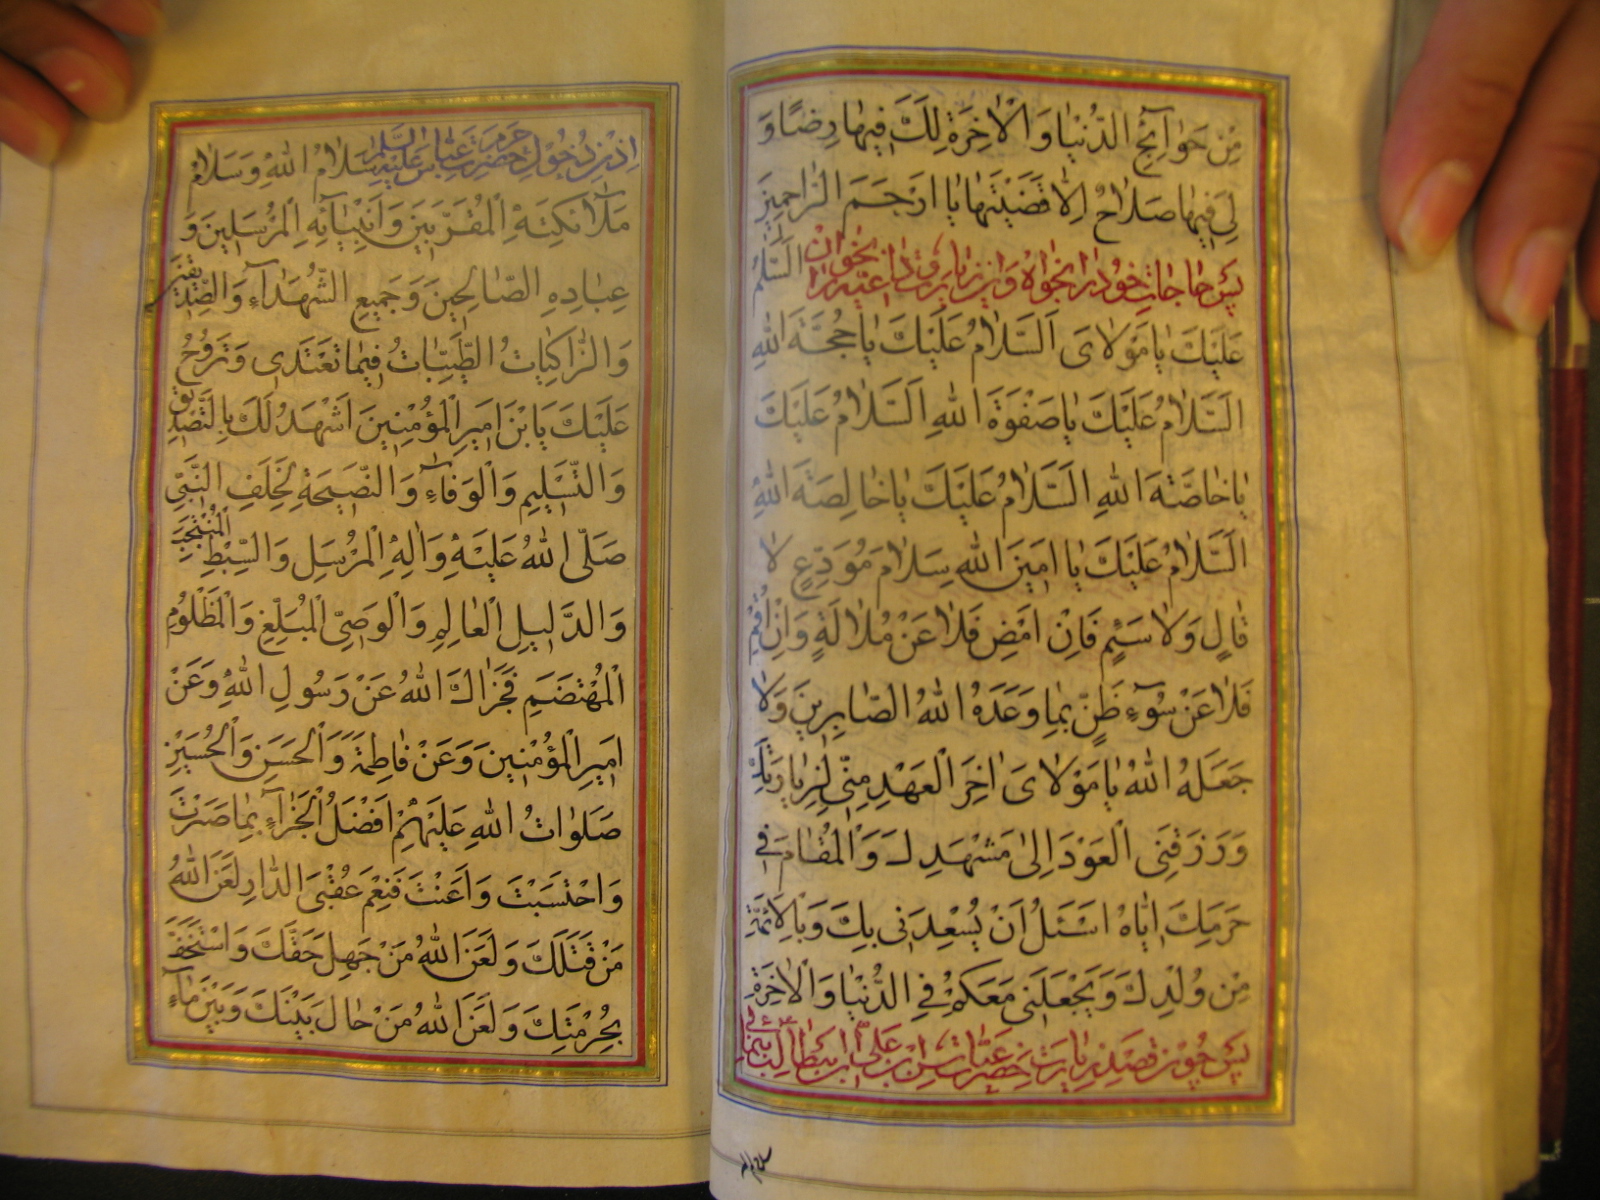 مِنْ حَوٰآئِجِ الدُّنْيٰا وَ الْاٰخِرَةِ لَكَ فِيهٰا رِضًا وَ
لِيَ فِيهٰا صَلٰاحٌ اِلّٰا قَضَيْتَهٰا يٰا اَرْحَمَ الرّٰاحِمِينَ
پس حاجات خود را بخواه و این زیارت وداعیه را بخوان اَلسَّلٰامُ
عَلَيْكَ يٰا مَوْلٰاىَ اَلسَّلٰامُ عَلَيْكَ يٰا حُجَّةَ اللّٰهِ
اَلسَّلٰامُ عَلَيْكَ يٰا صَفْوَةَ اللّٰهِ اَلسَّلٰامُ عَلَيْكَ
يٰا خٰاصَّةَ اللّٰهِ اَلسَّلٰامُ عَلَيْكَ يٰا خٰالِصَةَ اللّٰهِ
اَلسَّلٰامُ عَلَيْكَ يٰا اَمِينَ اللّٰهِ سَلٰامَ مُوَدِّعٍ لٰا
قٰالٍ وَلٰا سَئِمٍ فَاِنْ اَمْضِ فَلٰا عَنْ مَلٰالَةٍ وَاِنْ اُقِمْ
فَلٰا عَنْ سُوٓءِ ظَنٍّ بِمٰا وَعَدَهُ اللّٰهُ الصّٰابِرِينَ وَلٰا
جَعَلَهُ اللّٰهُ يٰا مَوْلٰاىَ اٰخِرَ الْعَهْدِ مِنّٖى لِزِيٰارَتِكَ
وَ رَزَقَنِى الْعَوْدَ اِلىٰ مَشْهَدِكَ وَ الْمُقٰامَ فِى
حَرَمِكَ اِيّٰاهُ اَسْئَلُ اَنْ يُسْعِدَنٖى بِكَ وَ بِالْاَئِمَّةِ
مِنْ وُلْدِكَ وَ يَجْعَلَنٖى مَعَكُمْ فِى الدُّنْيٰا وَ الْاٰخِرَةِ
پس چون قصد زیارت حضرت عباس بن علی ابن ابیطالب نمائی
سلام الله
اذن دخول حرم حضرت عباس علیه السلام سَلٰامُ اللّٰهِ وَ سَلٰامُ
مَلٰآئِكَتِهِ الْمُقَرَّبِينَ وَ اَنْبِيٰآئِهِ الْمُرْسَلِينَ وَ
عِبٰادِهِ الصّٰالِحِينَ وَ جَمِيعِ الشُّهَدٰآءِ وَ الصِّدِّيقِينَ
وَ الزّٰاكِيٰاتُ الطَّيِّبٰاتُ فِيمٰا تَغْتَدٖى وَ تَرُوحُ
عَلَيْكَ يَا بْنَ اَمِيرِ الْمُؤْمِنِينَ اَشْهَدُ لَكَ بِالتَّصْدِيقِ
وَ التَّسْلِيمِ وَ الْوَفٰآءِ وَ النَّصِيحَةِ لِخَلَفِ النَّبِىِّ
صَلَّى اللّٰهُ عَلَيْهِ وَ اٰلِهِ الْمُرْسَلِ وَ السِّبْطِ الْمُنْتَجَبِ
وَ الدَّلِيلِ الْعٰالِمِ وَ الْوَصِىِّ الْمُبَلِّغِ وَ الْمَظْلُومِ
الْمُهْتَضَمِ فَجَزٰاكَ اللّٰهُ عَنْ رَسُولِ اللّٰهِ وَ عَنْ
اَمِيرِ الْمُؤْمِنِينَ وَ عَنْ فٰاطِمَةَ وَ الْحَسَنِ وَ الْحُسَيْنِ
صَلَوٰاتُ اللّٰهِ عَلَيْهِمْ اَفْضَلَ الْجَزٰآءِ بِمٰا صَبَرْتَ
وَ احْتَسَبْتَ وَ اَعَنْتَ فَنِعْمَ عُقْبَى الدّٰارِ لَعَنَ اللّٰهُ
مَنْ قَتَلَكَ وَ لَعَنَ اللّٰهُ مَنْ جَهِلَ حَقَّكَ وَ اسْتَخَفَّ
بِحُرْمَتِكَ وَ لَعَنَ اللّٰهُ مَنْ حٰالَ بَيْنَكَ وَ بَيْنَ مٰآءِ